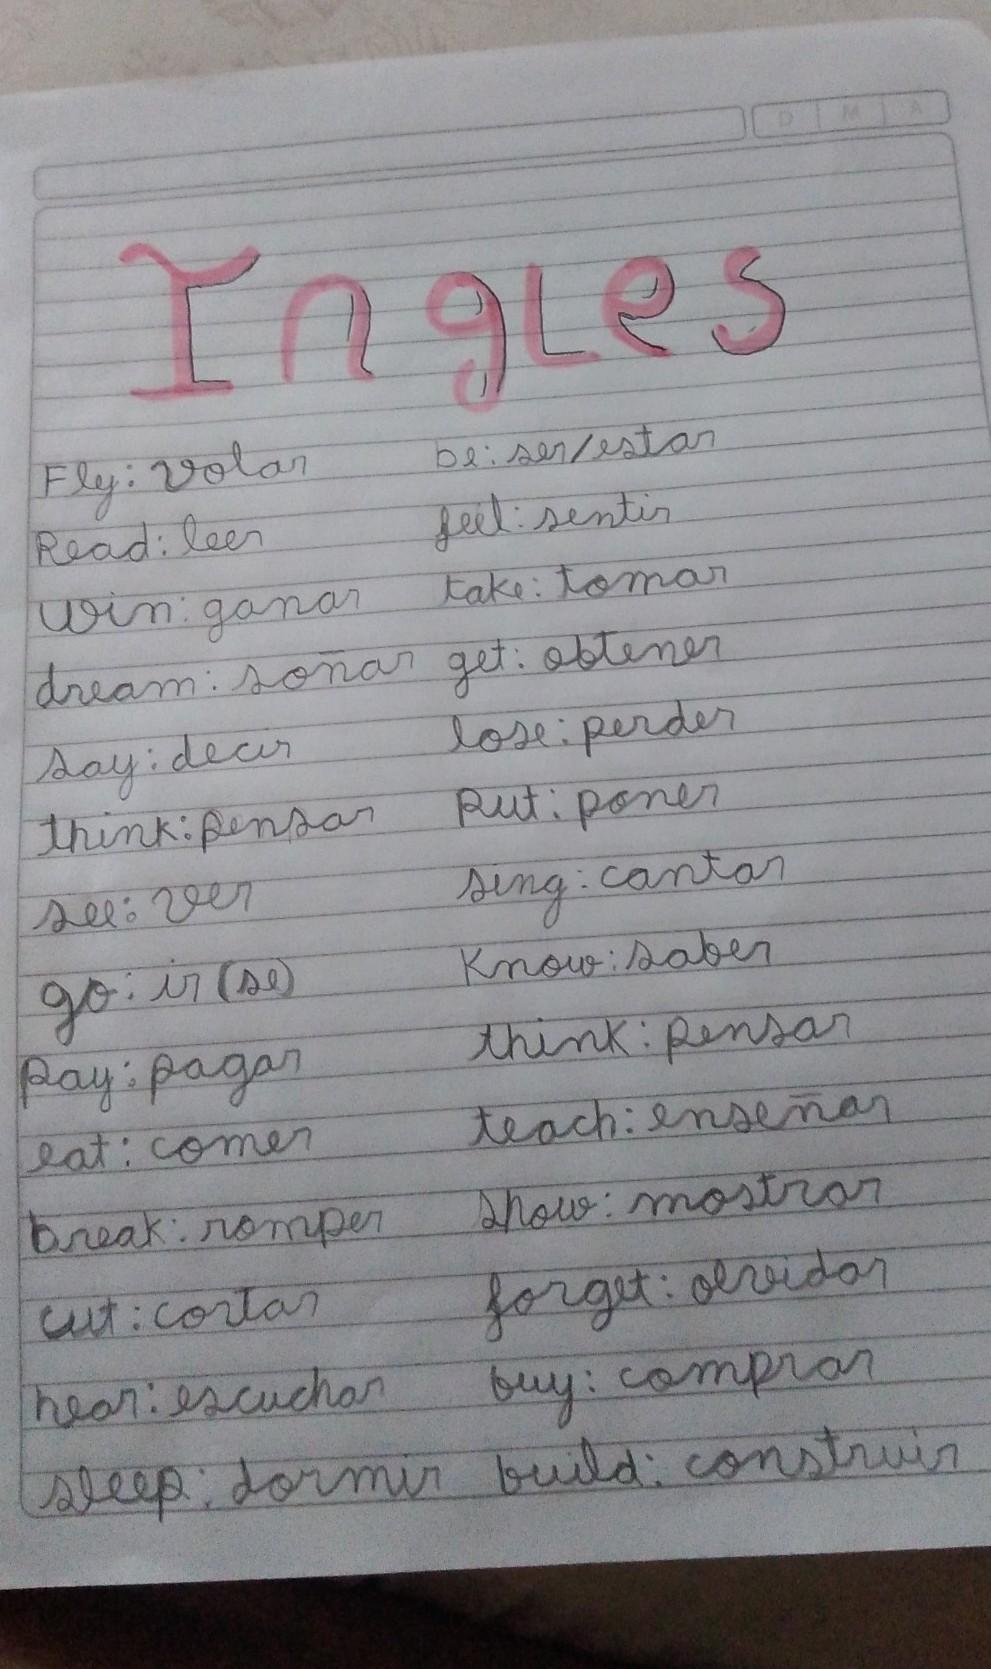 D M A
Ingles
Fly: volar be: ser/estar
Read: leer feel: sentir
win: ganar take: tomar
dream: soñar get: obtener
say: decir lose: perder
think: pensar put: poner
see: ver sing: cantar
go: ir (se) Know: saber
pay: pagar think: pensar
eat: comer teach: enseñar
break: romper show: mostrar
cut: cortar forget: olvidar
hear: escuchar buy: comprar
sleep: dormir build: construir